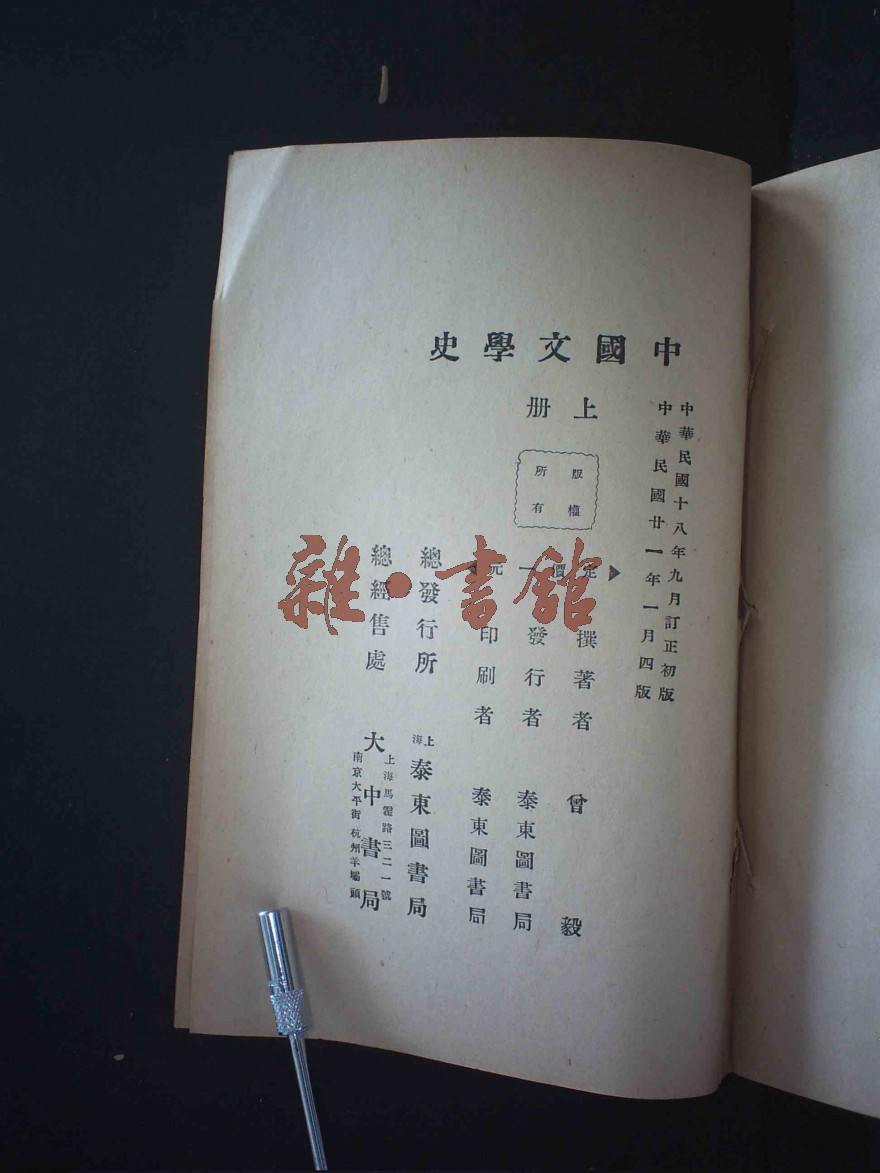 中國文學史
上册
中華民國十八年九月訂正初版
中華民國廿一年一月四版
版權
所有
定價一元
撰著者 曾毅
發行者 泰東圖書局
印刷者 泰東圖書局
總發行所 上海泰東圖書局
總經售處 大中書局
上海馬霍路三二一號
南京太平街 杭州羊壩頭
雜·書館